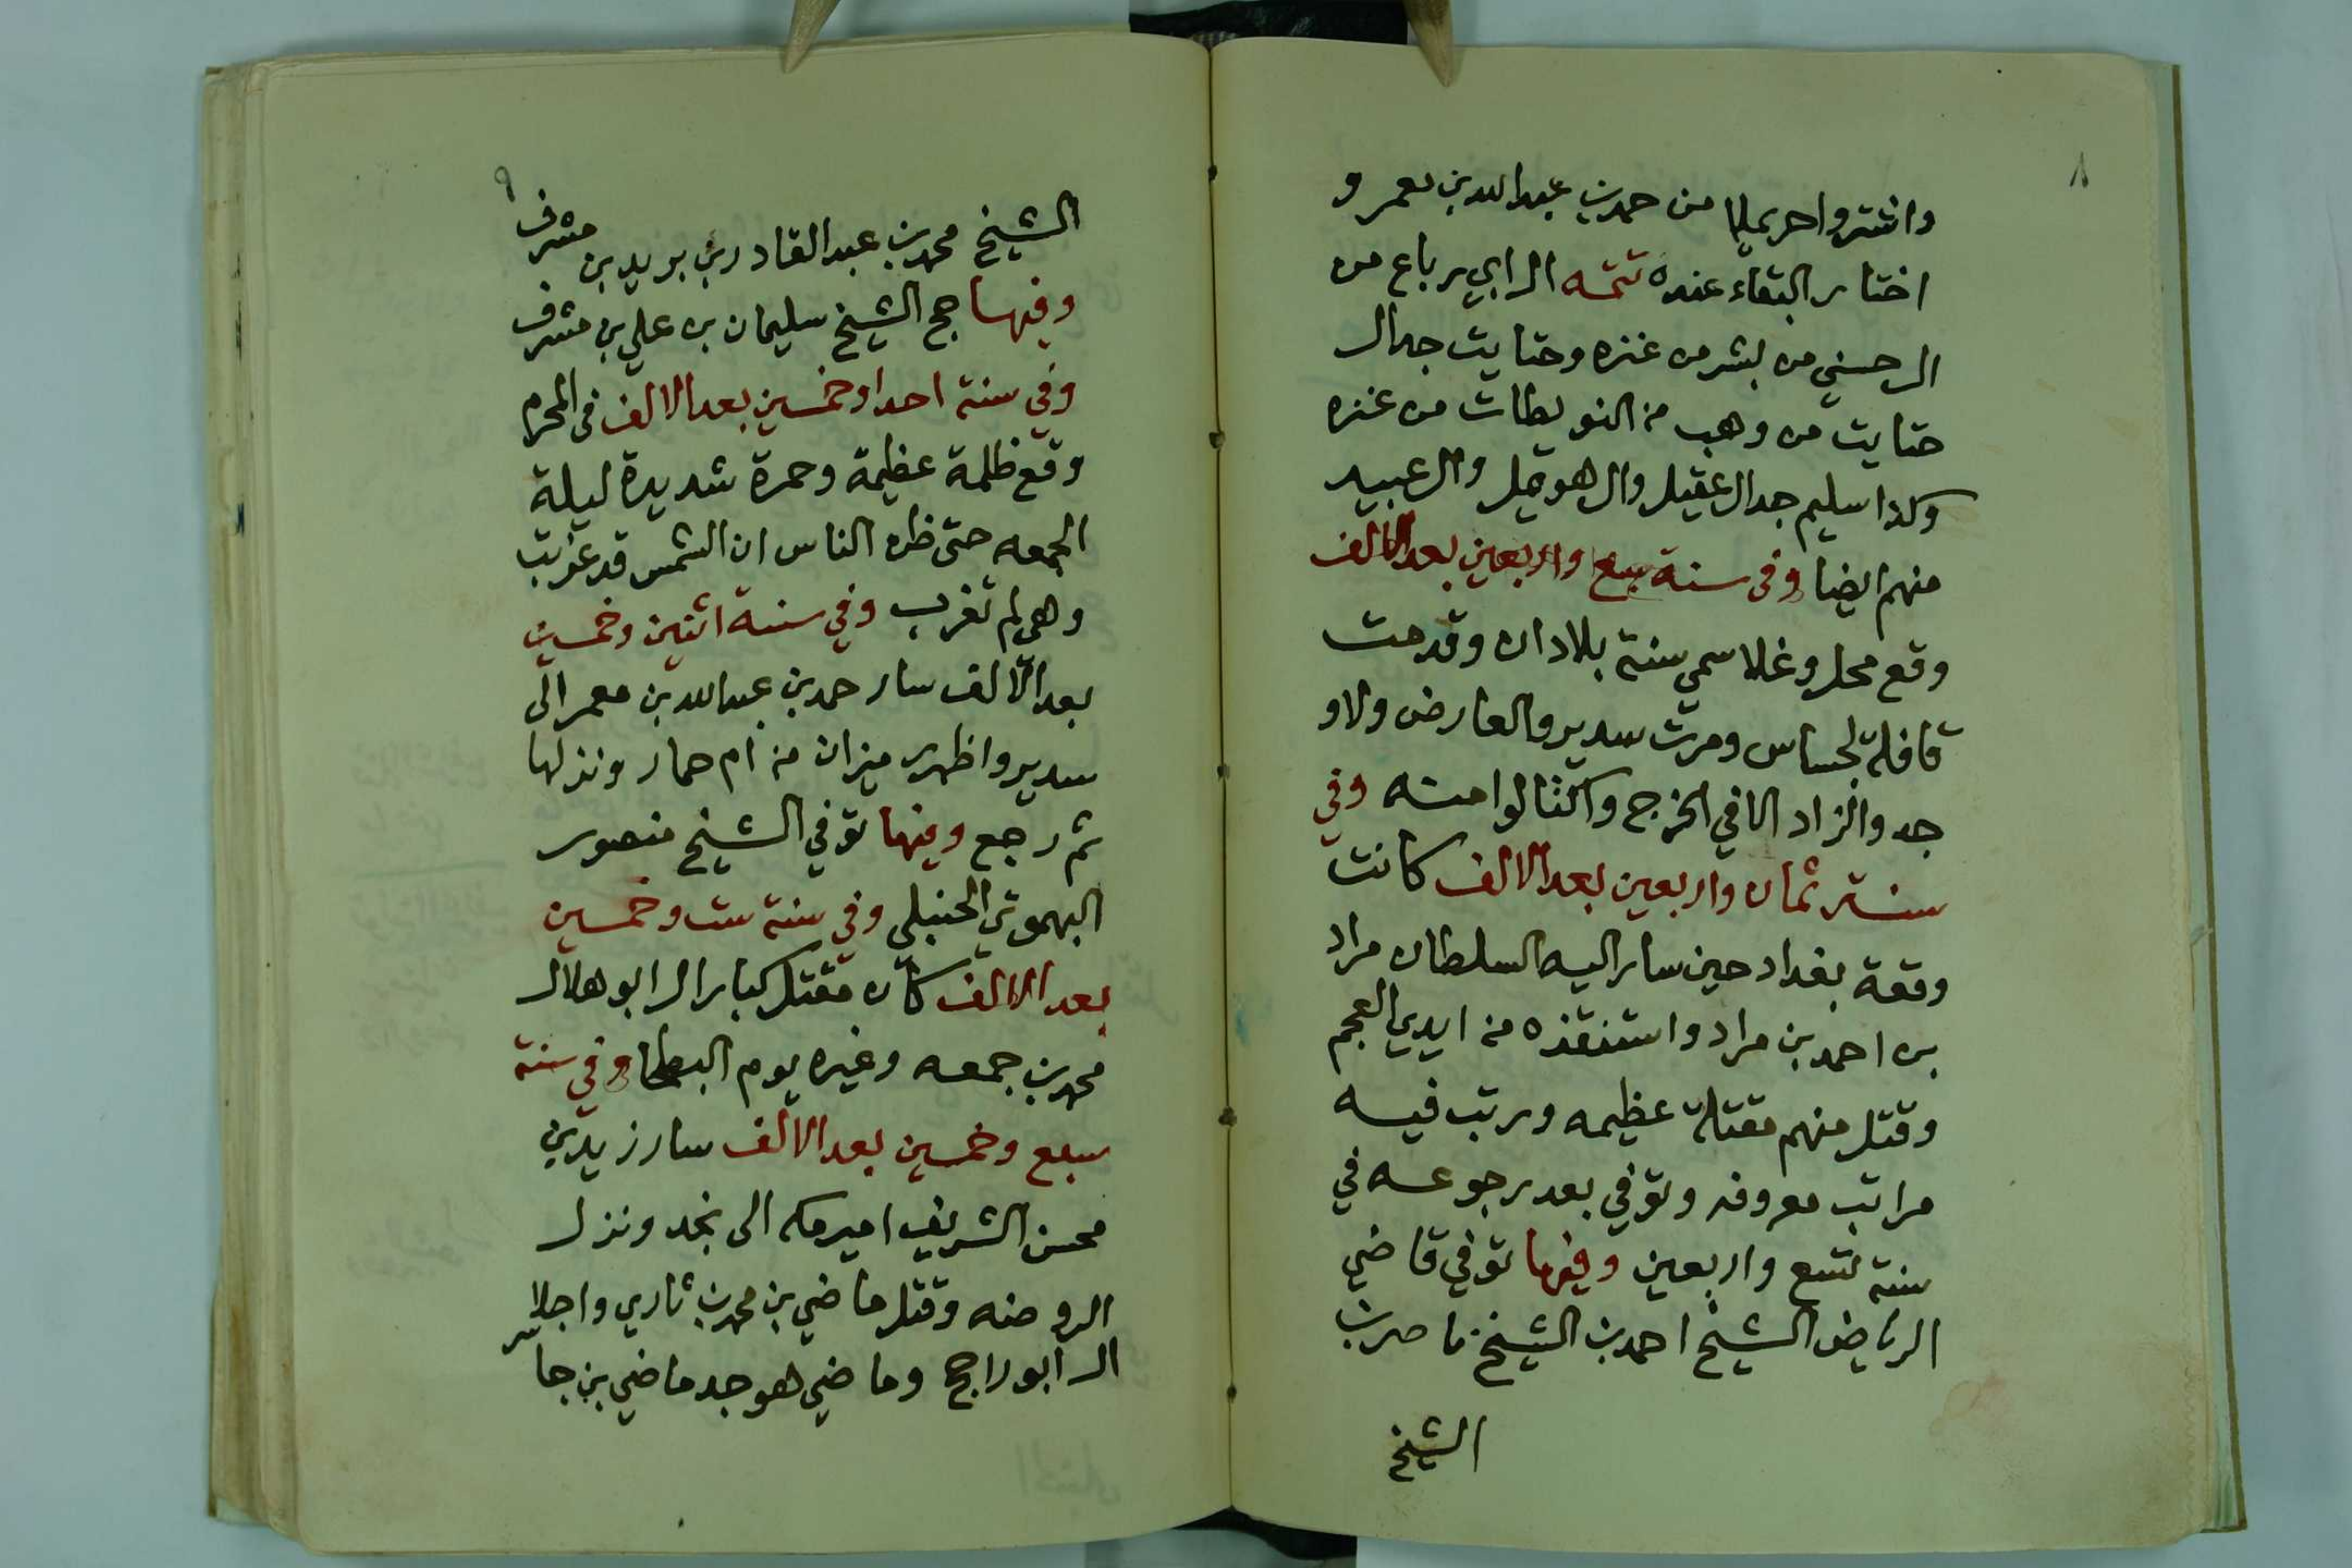 ٨
واشتروا حريملا من حمد بن عبدالله بن معمر و
اختار البقاء عنده تتمه ال ابي رباع من
ال حسني من بشر من عنزه وحتايت جد ال
حتايت من وهب من النويطات من عنزه
وكذا سليم جد ال عقيل وال هويمل وال عبيد
منهم ايضا وفي سنة سبع واربعين بعد الالف
وقع محل وغلا سمي سنة بلادان وقدمت
قافلة لجساس ومرت سدير والعارض ولاو
جدوا الزاد الا في الخرج واكتالوا منه وفي
سنة ثمان واربعين بعد الالف كانت
وقعة بغداد حين سار اليه السلطان مراد
بن احمد بن مراد واستنقذه من ايدي العجم
وقتل منهم مقتلة عظيمه ورتب فيه
مراتب معروفه وتوفي بعد رجوعه في
سنة تسع واربعين وفيها توفي قاضي
الرياض الشيخ احمد بن الشيخ ناصر بن
الشيخ
٩
الشيخ محمد بن عبدالقادر بن بريد بن مشرف
وفيها حج الشيخ سليمان بن علي بن مشرف
وفي سنة احدا وخمسين بعد الالف في المحرم
وقع ظلمة عظيمة وحمرة شديدة ليلة
الجمعه حتى ظن الناس ان الشمس قد غربت
وهي لم تغرب وفي سنة اثنين وخمسين
بعد الالف سار حمد بن عبدالله بن معمر الى
سدير واظهر ميزان من ام حمار ونزلها
ثم رجع وفيها توفي الشيخ منصور
البهوتي الحنبلي وفي سنة ست وخمسين
بعد الالف كان مقتل كبار ال ابو هلال
محمد بن جمعه وغيره يوم البطحا وفي سنة
سبع وخمسين بعد الالف سار زيد بن
محسن الشريف امير مكه الى نجد ونزل
الروضه وقتل ماضي بن محمد بن ثاري واجلا
ال ابو راجح وماضي هو جد ماضي بن جاسر